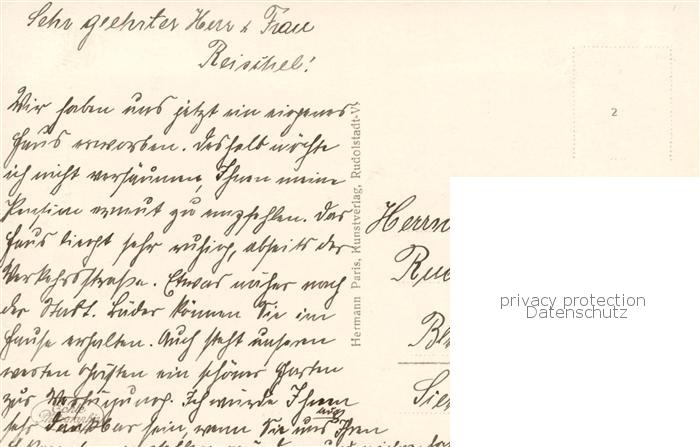 Sehr geehrter Herr & Frau
Reischel!
Wir haben uns jetzt ein eigenes
Haus erworben. Deshalb möchte
ich nicht versäumen, Ihnen meine
Pension erneut zu empfehlen. Das
Haus liegt sehr ruhig, abseits der
Verkehrsstraße. Etwas näher nach
der Stadt. Bäder können Sie im
Hause erhalten. Auch steht unseren
werten Gästen ein schöner Garten
zur Verfügung. Ich würde Ihnen
sehr dankbar sein, wenn Sie uns auch Ihren
Hermann Paris, Kunstverlag, Rudolstadt-V
2
Herrn
privacy protection
Datenschutz